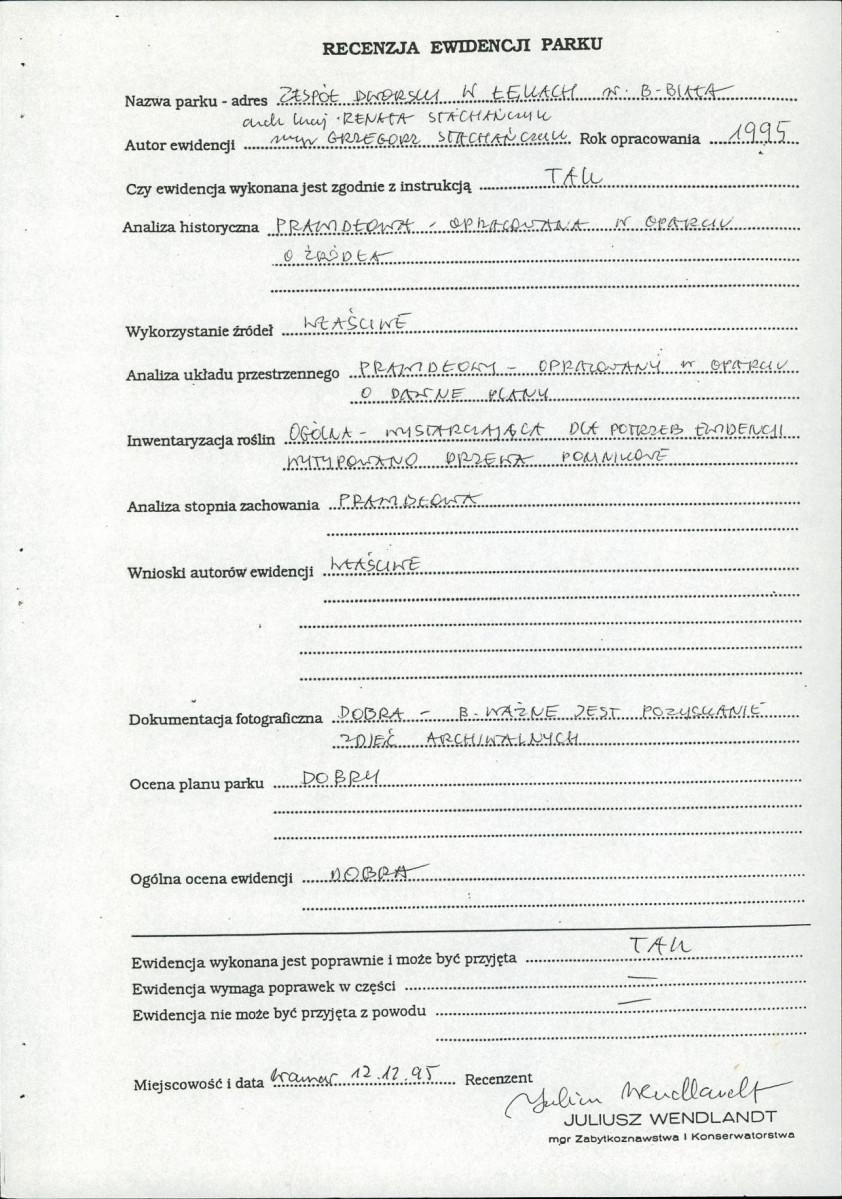 RECENZJA EWIDENCJI PARKU
Nazwa parku - adres ZESPÓŁ DWORSKI W ŁĘKACH W. B-BIAŁA
arch kraj. RENATA STACHAŃCZYK
Autor ewidencji mgr GRZEGORZ STACHAŃCZYK Rok opracowania 1995
Czy ewidencja wykonana jest zgodnie z instrukcją TAK
Analiza historyczna PRAWIDŁOWA - OPRACOWANA W OPARCIU
O ŹRÓDŁA
Wykorzystanie źródeł WŁAŚCIWE
Analiza układu przestrzennego PRAWIDŁOWY - OPRACOWANY W OPARCIU
O DAWNE PLANY
Inwentaryzacja roślin OGÓLNA - WYSTARCZAJĄCA DLA POTRZEB EWIDENCJI
WYTYPOWANO DRZEWA POMNIKOWE
Analiza stopnia zachowania PRAWIDŁOWA
Wnioski autorów ewidencji WŁAŚCIWE
Dokumentacja fotograficzna DOBRA - B. WAŻNE JEST POZYSKANIE
ZDJĘĆ ARCHIWALNYCH
Ocena planu parku DOBRY
Ogólna ocena ewidencji DOBRA
Ewidencja wykonana jest poprawnie i może być przyjęta TAK
Ewidencja wymaga poprawek w części —
Ewidencja nie może być przyjęta z powodu —
Miejscowość i data 12.12.95 Recenzent
Juliusz Wendlandt
JULIUSZ WENDLANDT
mgr Zabytkoznawstwa i Konserwatorstwa